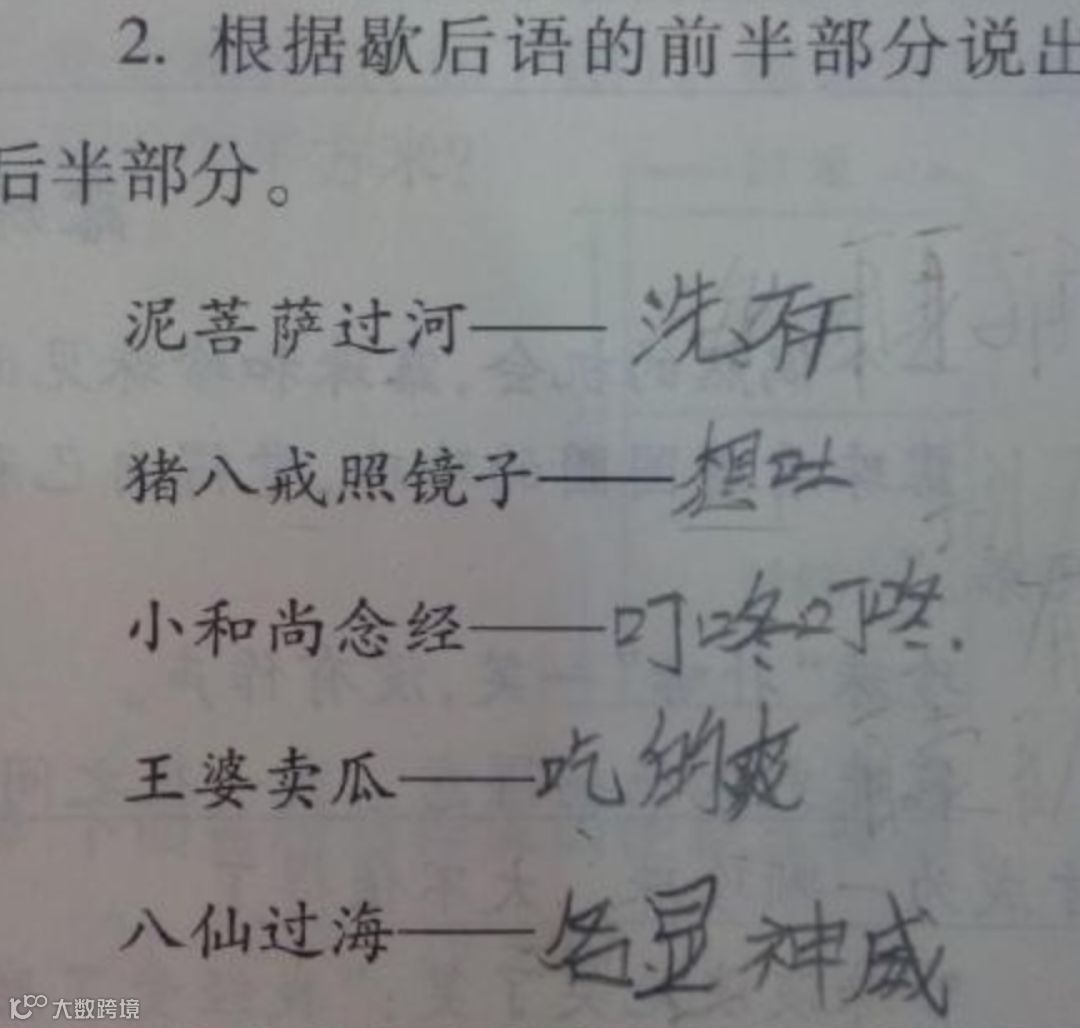 2. 根据歇后语的前半部分说出
后半部分。
泥菩萨过河——洗存
猪八戒照镜子——想吐
小和尚念经——叮咚叮咚.
王婆卖瓜——吃的爽
八仙过海——各显神威
大数跨境